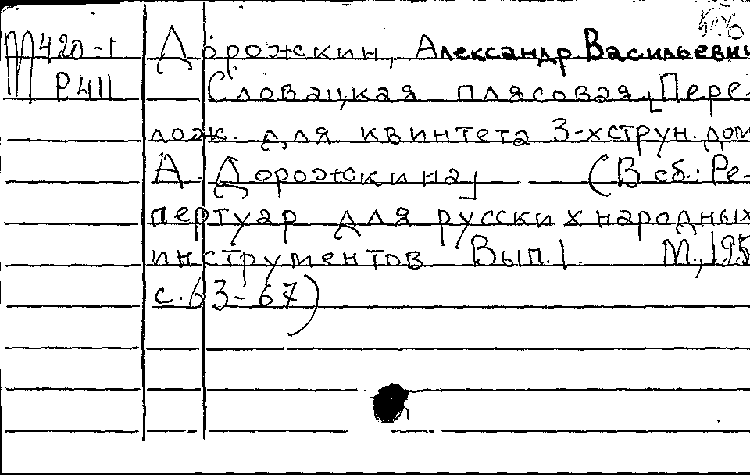 М420-1 Дорожкин, Александр Васильеви
Р411 Словацкая плясовая [Пере-
лож. для квинтета 3-хструн. дом
А. Дорожкина] (В сб.: Ре-
пертуар для русских народных
инструментов Вып. 1 М., 195
с. 63-67)